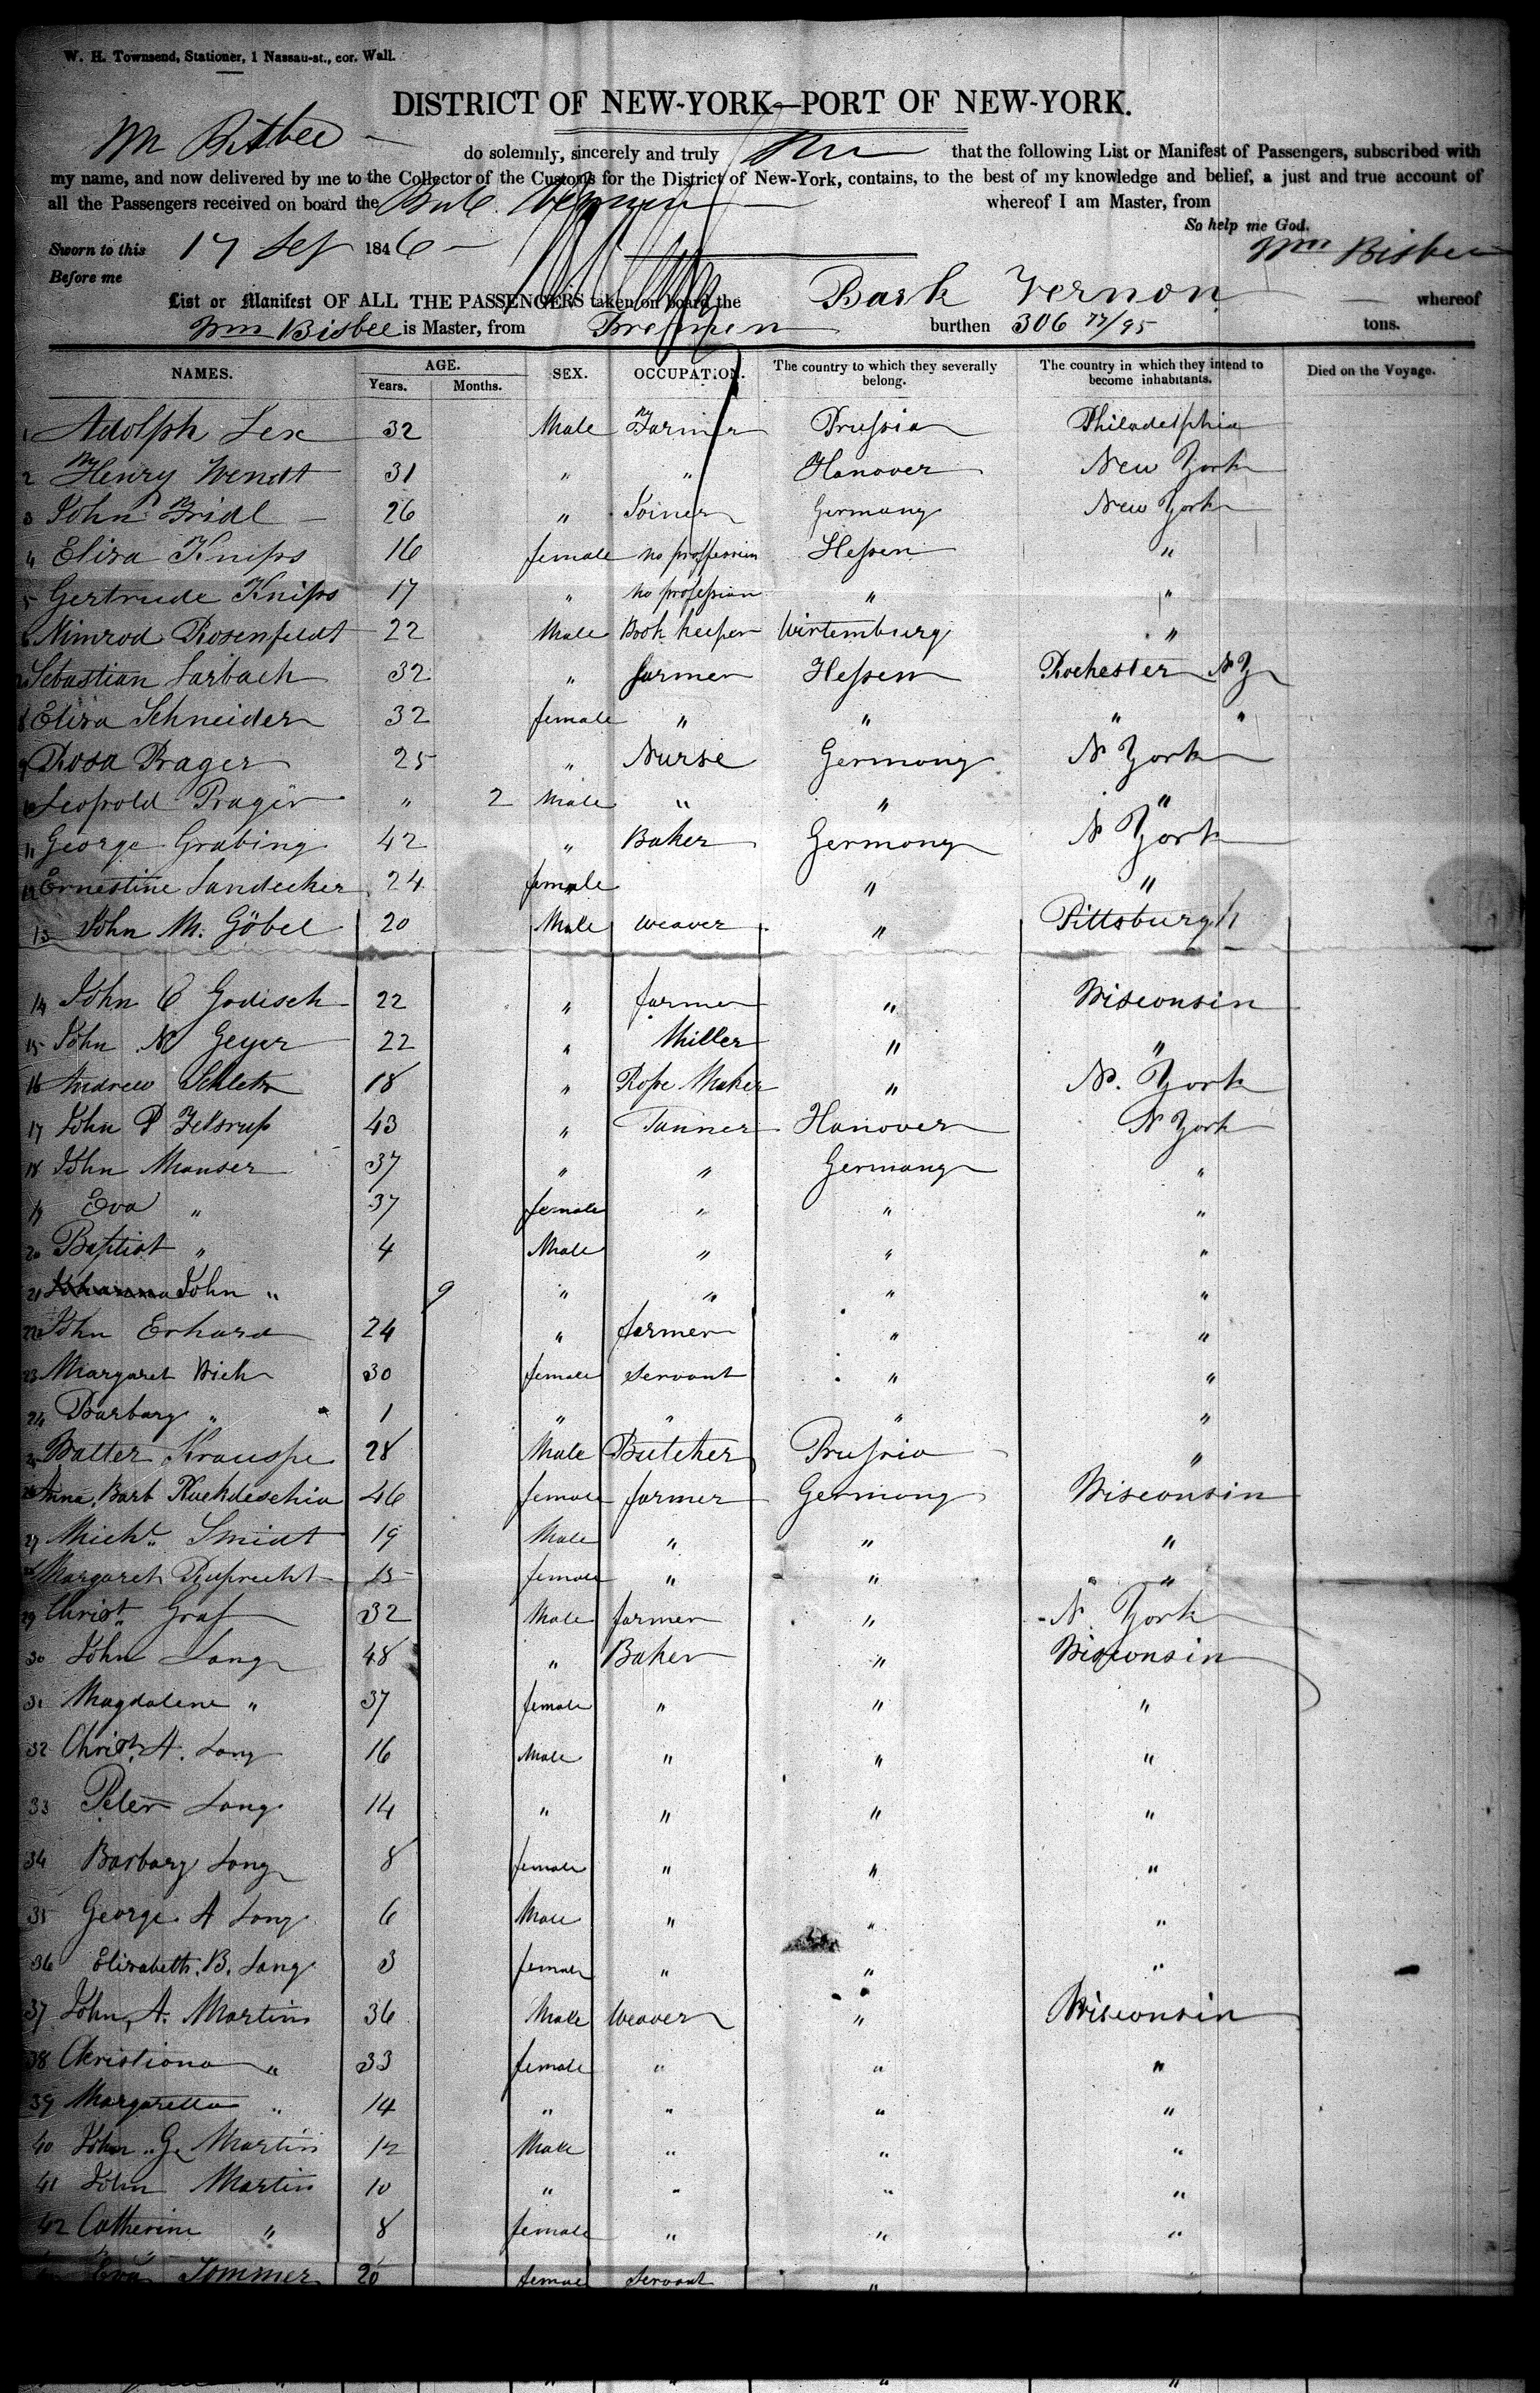 W. H. Townsend, Stationer, 1 Nassau-st., cor. Wall.
DISTRICT OF NEW-YORK—PORT OF NEW-YORK.
Wm Bisbee do solemnly, sincerely and truly that the following List or Manifest of Passengers, subscribed with
my name, and now delivered by me to the Collector of the Customs for the District of New-York, contains, to the best of my knowledge and belief, a just and true account of
all the Passengers received on board the Bark Vernon whereof I am Master, from
So help me God.
Sworn to this 17 Sep 1846 Wm Bisbee
Before me
List or Manifest OF ALL THE PASSENGERS taken on board the Bark Vernon whereof
Wm Bisbee is Master, from Bremen burthen 306 77/95 tons.
NAMES. AGE. Years. Months. SEX. OCCUPATION. The country to which they severally belong. The country in which they intend to become inhabitants. Died on the Voyage.
1 Adolph Lex 32 Male Farmer Prussia Philadelphia
2 Henry Wendt 31 " " Hanover New York
3 John Fridl 26 " Joiner Germany New York
4 Eliza Knips 16 female no profession Hessen "
5 Gertrude Knips 17 " no profession " "
6 Nimrod Rosenfeldt 22 Male Book keeper Wirtemburg "
7 Sebastian Sarbach 32 " farmer Hessen Rochester NY
8 Eliza Schneider 32 female " " " "
9 Rosa Prager 25 " Nurse Germany N York
10 Leopold Prager " 2 Male " " "
11 George Grabing 42 " Baker Germany N York
12 Ernestine Landecker 24 female " "
13 John M. Göbel 20 Male weaver " Pittsburgh
14 John C Godisch 22 " farmer " Wisconsin
15 John N Geyer 22 " Miller " "
16 Andrew 18 " Rope Maker " N. York
17 John P 43 " Tanner Hanover N York
18 John Manser 37 " " Germany "
19 Eva " 37 female " " "
20 Baptist " 4 Male " " "
21 John " 9 " " " "
22 John Erhard 24 " farmer " "
23 Margaret 30 female servant " "
24 Barbary " 1 " " " "
25 Balter Krauspe 28 Male Butcher Prussia "
26 Anna Barb Ruckdeschia 46 female farmer Germany Wisconsin
27 Michl. Smidt 19 Male " " "
28 Margaret Ruprecht 15 female " " "
29 Christ. Graf 32 Male farmer " N York
30 John Lang 48 " Baker " Wisconsin
31 Magdalene " 37 female " " "
32 Christ. A. Lang 16 Male " " "
33 Peter Lang 14 " " " "
34 Barbary Lang 8 female " " "
35 George A Lang 6 Male " " "
36 Elizabeth. B. Lang 3 female " " "
37 John A. Martin 36 Male Weaver " Wisconsin
38 Christiana " 33 female " " "
39 Margaretta " 14 " " " "
40 John G. Martin 12 Male " " "
41 John Martin 10 " " " "
42 Catherine " 8 female " " "
Eva Sommer 20 female servant "